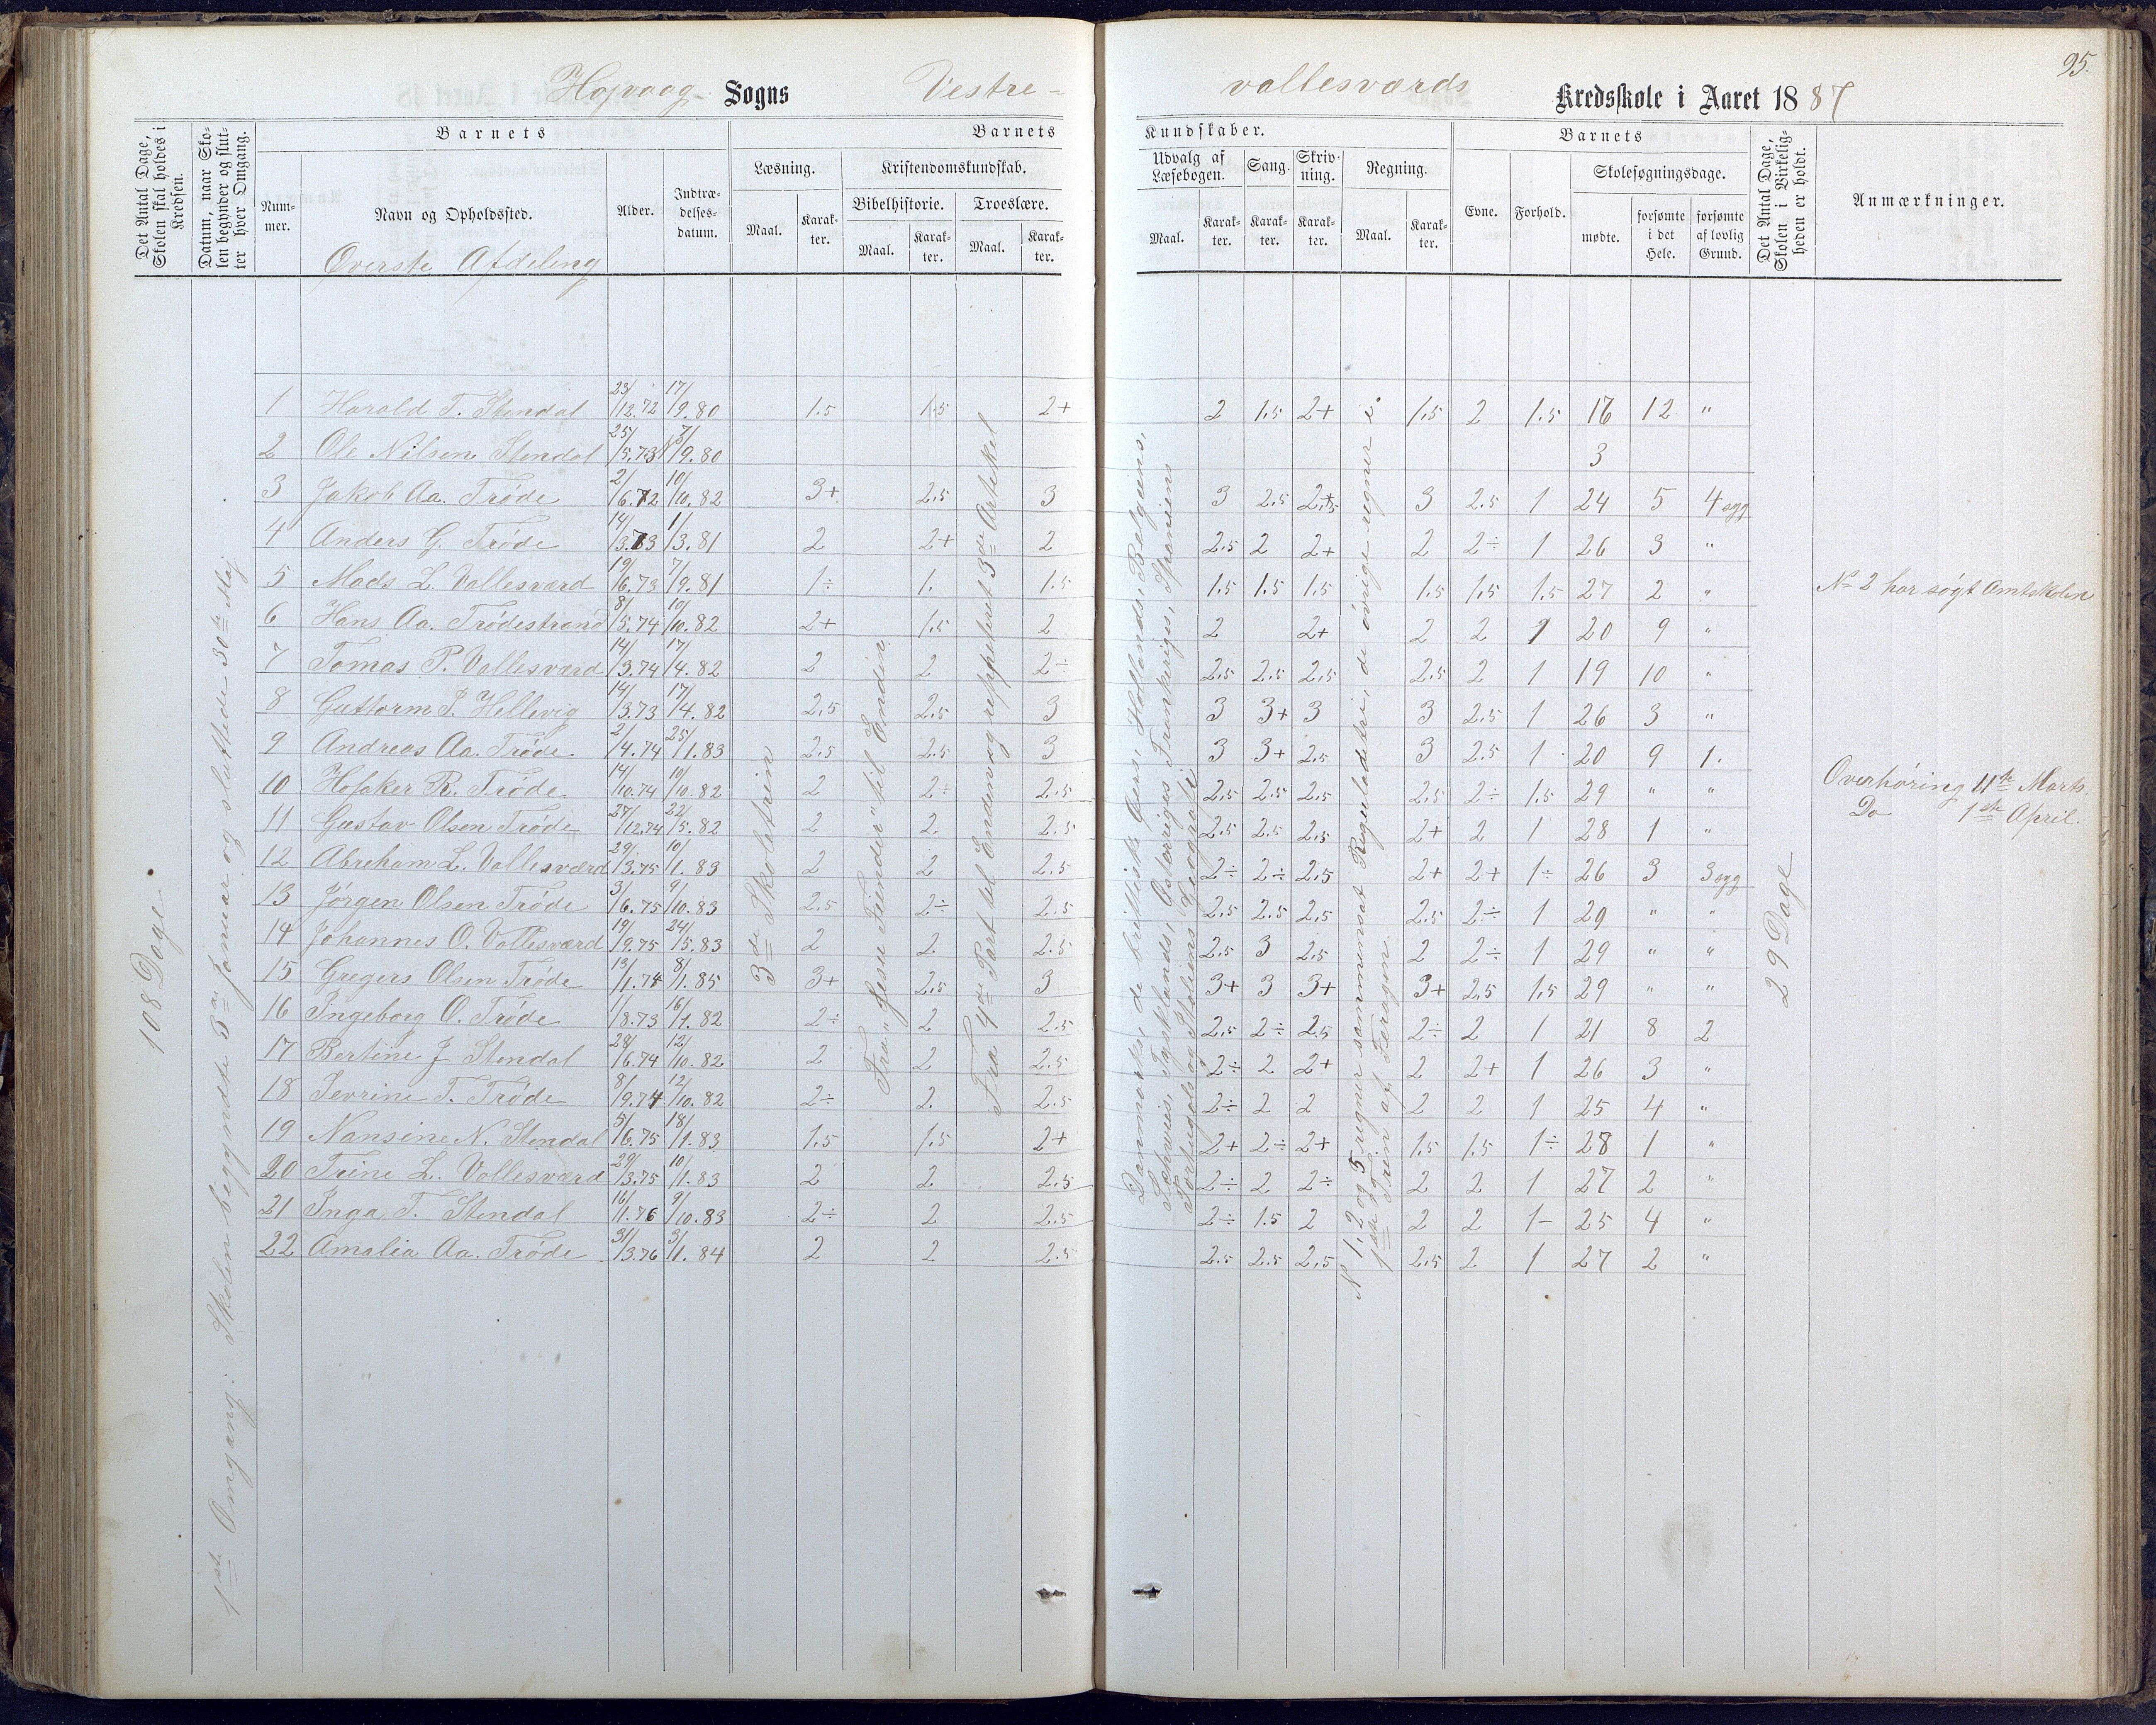 95.
Højvaag Sogns Vestre- vallesværds Kredsskole i Aaret 1887
Det Antal Dage, Skolen skal holdes i Kredsen.
Datum, naar Skolen begynder og slutter hver Omgang.
Barnets
Nummer.
Navn og Opholdssted.
Øverste Afdeling
Alder.
Indtrædelsesdatum.
Barnets Kundskaber.
Læsning.
Maal. Karakter.
Kristendomskundskab.
Bibelhistorie.
Maal. Karakter.
Troeslære.
Maal. Karakter.
Udvalg af Læsebogen.
Maal. Karakter.
Sang.
Karakter.
Skrivning.
Karakter.
Regning.
Maal. Karakter.
Barnets
Evne. Forhold.
Skolesøgningsdage.
mødte. forsømte i det Hele. forsømte af lovlig Grund.
Det Antal Dage, Skolen i Virkeligheden er holdt.
Anmærkninger.
108 Dage
1ste Omgang: Skolen begyndte 3die Januar og sluttede 30te Maj
3die Skoletrin
Fra "Jesu Fiender" til Enden
Fra 4de Part til Enden og reppeteret 3die Artikel
Danmarks, de brittiske Øers, Hollands, Belgiens,
Schweis, Tysklands, Østeriges, Frankriges, Spaniens
Portugals og Italiens Geografi
No 1, 2 og 5 regner sammensat Reguladetri, de øvrige regner i
1ste Trin af Terragon.
29 Dage
1 Harald T. Stendal 23/12.72 17/9.80 1.5 1.5 2+ 2 1.5 2+ 1.5 2 1.5 16 12 "
2 Ole Nilsen Stendal 25/5.73 7/9.80 3
3 Jakob Aa. Trøde 2/6.72 10/10.82 3+ 2.5 3 3 2.5 2+ 3 2.5 1 24 5 4 syg
4 Anders G. Trøde 14/3.73 1/3.81 2 2+ 2 2.5 2 2+ 2 2÷ 1 26 3 "
5 Mads L. Vallesværd 19/6.73 7/9.81 1÷ 1. 1.5 1.5 1.5 1.5 1.5 1.5 1.5 27 2 "
6 Hans Aa. Trødestrand 8/5.74 10/10.82 2+ 1.5 2 2 2+ 2 2 1 20 9 "
7 Tomas P. Vallesværd 14/3.74 17/4.82 2 2 2÷ 2.5 2.5 2.5 2.5 2 1 19 10 "
8 Guttorm J. Hellevig 14/3.73 17/4.82 2.5 2.5 3 3 3+ 3 3 2.5 1 26 3 "
9 Andreas Aa. Trøde 2/4.74 25/1.83 2.5 2.5 3 3 3+ 2.5 3 2.5 1 20 9 1.
10 Hofaker R. Trøde 14/10.74 10/10.82 2 2÷ 2.5 2.5 2.5 2.5 2.5 2÷ 1.5 29 " "
11 Gustav Olsen Trøde 27/12.74 22/5.82 2 2. 2.5 2.5 2.5 2.5 2+ 2 1 28 1 "
12 Abreham L. Vallesværd 29/3.75 10/1.83 2 2 2.5 2÷ 2÷ 2.5 2+ 2+ 1÷ 26 3 3 syg
13 Jørgen Olsen Trøde 3/6.75 9/10.83 2.5 2÷ 2.5 2.5 2.5 2.5 2.5 2÷ 1 29 " "
14 Johannes O. Vallesværd 19/9.75 24/5.83 2 2. 2.5 2.5 3 2.5 2 2÷ 1 29 " "
15 Gregers Olsen Trøde 13/1.74 8/1.85 3+ 2.5 3 3+ 3 3+ 3+ 2.5 1.5 29 " "
16 Ingeborg O. Trøde 1/8.73 16/1.82 2÷ 2 2.5 2.5 2÷ 2.5 2÷ 2 1 21 8 2
17 Bertine J Stendal 28/6.74 12/10.82 2 2 2.5 2÷ 2 2+ 2 2+ 1 26 3 "
18 Sevrine T. Trøde 8/9.74 12/10.82 2÷ 2. 2.5 2÷ 2 2 2 2 1 25 4 "
19 Nansine N. Stendal 5/6.75 18/1.83 1.5 1.5 2+ 2+ 2÷ 2+ 1.5 1.5 1÷ 28 1 "
20 Trine L. Vallesværd 29/3.75 10/1.83 2 2 2.5 2÷ 2 2÷ 2 2 1 27 2 "
21 Inga T. Stendal 16/1.76 9/10.83 2÷ 2 2.5 2÷ 1.5 2 2 2 1- 25 4 "
22 Amalia Aa. Trøde 31/3.76 3/1.84 2 2 2.5 2.5 2.5 2.5 2.5 2 1 27 2 "
No 2 har søgt Amtskolen
Overhøring 11te Marts.
Do 1ste April.